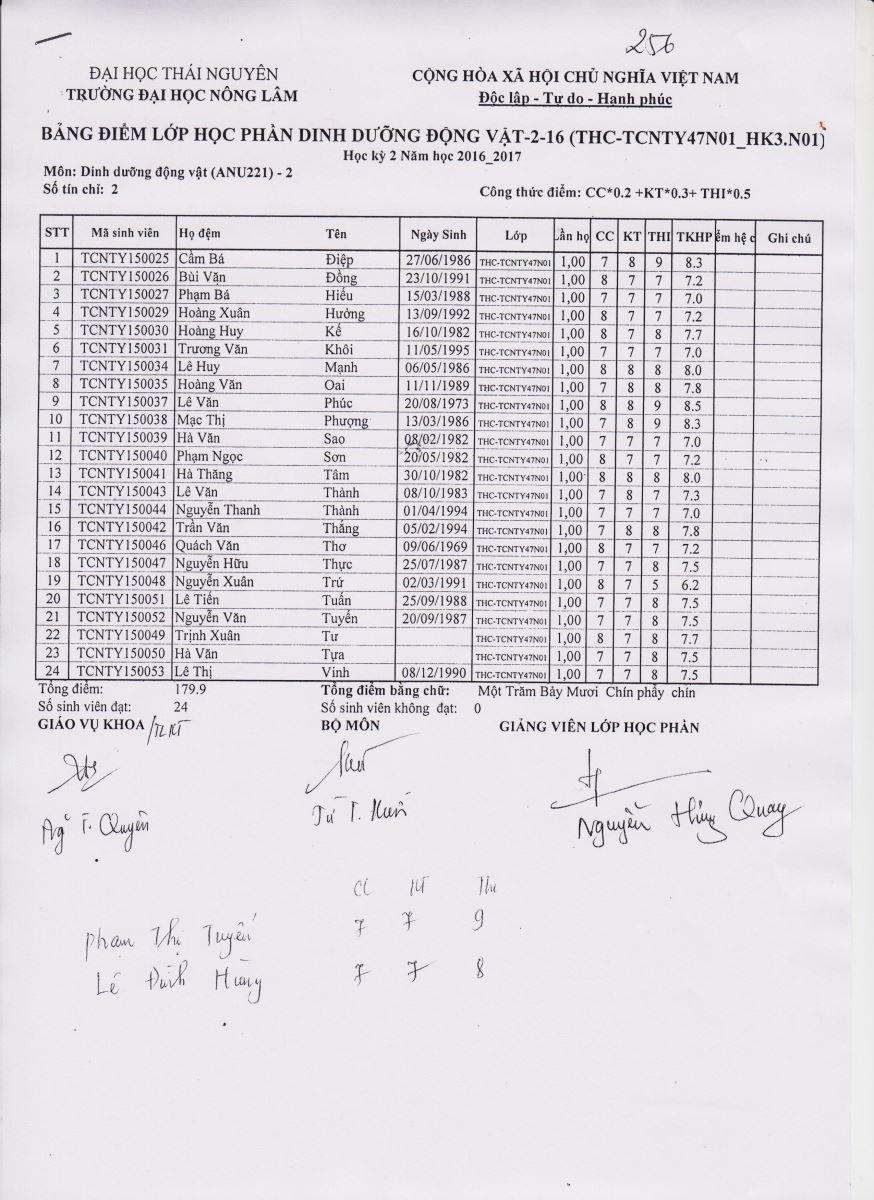 256
ĐẠI HỌC THÁI NGUYÊN CỘNG HÒA XÃ HỘI CHỦ NGHĨA VIỆT NAM
TRƯỜNG ĐẠI HỌC NÔNG LÂM Độc lập - Tự do - Hạnh phúc
BẢNG ĐIỂM LỚP HỌC PHẦN DINH DƯỠNG ĐỘNG VẬT-2-16 (THC-TCNTY47N01_HK3.N01)
Học kỳ 2 Năm học 2016_2017
Môn: Dinh dưỡng động vật (ANU221) - 2
Số tín chỉ: 2 Công thức điểm: CC*0.2 +KT*0.3+ THI*0.5
STT Mã sinh viên Họ đệm Tên Ngày Sinh Lớp Lần họ CC KT THI TKHP ểm hệ c Ghi chú
1 TCNTY150025 Cầm Bá Điệp 27/06/1986 THC-TCNTY47N01 1,00 7 8 9 8.3
2 TCNTY150026 Bùi Văn Đồng 23/10/1991 THC-TCNTY47N01 1,00 8 7 7 7.2
3 TCNTY150027 Phạm Bá Hiếu 15/03/1988 THC-TCNTY47N01 1,00 7 7 7 7.0
4 TCNTY150029 Hoàng Xuân Hưởng 13/09/1992 THC-TCNTY47N01 1,00 8 7 7 7.2
5 TCNTY150030 Hoàng Huy Kế 16/10/1982 THC-TCNTY47N01 1,00 8 7 8 7.7
6 TCNTY150031 Trương Văn Khôi 11/05/1995 THC-TCNTY47N01 1,00 7 7 7 7.0
7 TCNTY150034 Lê Huy Mạnh 06/05/1986 THC-TCNTY47N01 1,00 8 8 8 8.0
8 TCNTY150035 Hoàng Văn Oai 11/11/1989 THC-TCNTY47N01 1,00 7 8 8 7.8
9 TCNTY150037 Lê Văn Phúc 20/08/1973 THC-TCNTY47N01 1,00 8 8 9 8.5
10 TCNTY150038 Mạc Thị Phượng 13/03/1986 THC-TCNTY47N01 1,00 7 8 9 8.3
11 TCNTY150039 Hà Văn Sao 08/02/1982 THC-TCNTY47N01 1,00 7 7 7 7.0
12 TCNTY150040 Phạm Ngọc Sơn 20/05/1982 THC-TCNTY47N01 1,00 8 7 7 7.2
13 TCNTY150041 Hà Thăng Tâm 30/10/1982 THC-TCNTY47N01 1,00 8 8 8 8.0
14 TCNTY150043 Lê Văn Thành 08/10/1983 THC-TCNTY47N01 1,00 7 8 7 7.3
15 TCNTY150044 Nguyễn Thanh Thành 01/04/1994 THC-TCNTY47N01 1,00 7 7 7 7.0
16 TCNTY150042 Trần Văn Thắng 05/02/1994 THC-TCNTY47N01 1,00 7 8 8 7.8
17 TCNTY150046 Quách Văn Thơ 09/06/1969 THC-TCNTY47N01 1,00 8 7 7 7.2
18 TCNTY150047 Nguyễn Hữu Thực 25/07/1987 THC-TCNTY47N01 1,00 7 7 8 7.5
19 TCNTY150048 Nguyễn Xuân Trứ 02/03/1991 THC-TCNTY47N01 1,00 8 7 5 6.2
20 TCNTY150051 Lê Tiến Tuấn 25/09/1988 THC-TCNTY47N01 1,00 7 7 8 7.5
21 TCNTY150052 Nguyễn Văn Tuyến 20/09/1987 THC-TCNTY47N01 1,00 7 7 8 7.5
22 TCNTY150049 Trịnh Xuân Tư THC-TCNTY47N01 1,00 8 7 8 7.7
23 TCNTY150050 Hà Văn Tựa THC-TCNTY47N01 1,00 7 7 8 7.5
24 TCNTY150053 Lê Thị Vinh 08/12/1990 THC-TCNTY47N01 1,00 7 7 8 7.5
Tổng điểm: 179.9 Tổng điểm bằng chữ: Một Trăm Bảy Mươi Chín phẩy chín
Số sinh viên đạt: 24 Số sinh viên không đạt: 0
GIÁO VỤ KHOA /TLKT BỘ MÔN GIẢNG VIÊN LỚP HỌC PHẦN
T. Quyên Từ T. Nguyễn Quay
CC KT Thi
Phạm Thị Tuyến 7 7 9
Lê Đình Hùng 7 7 8